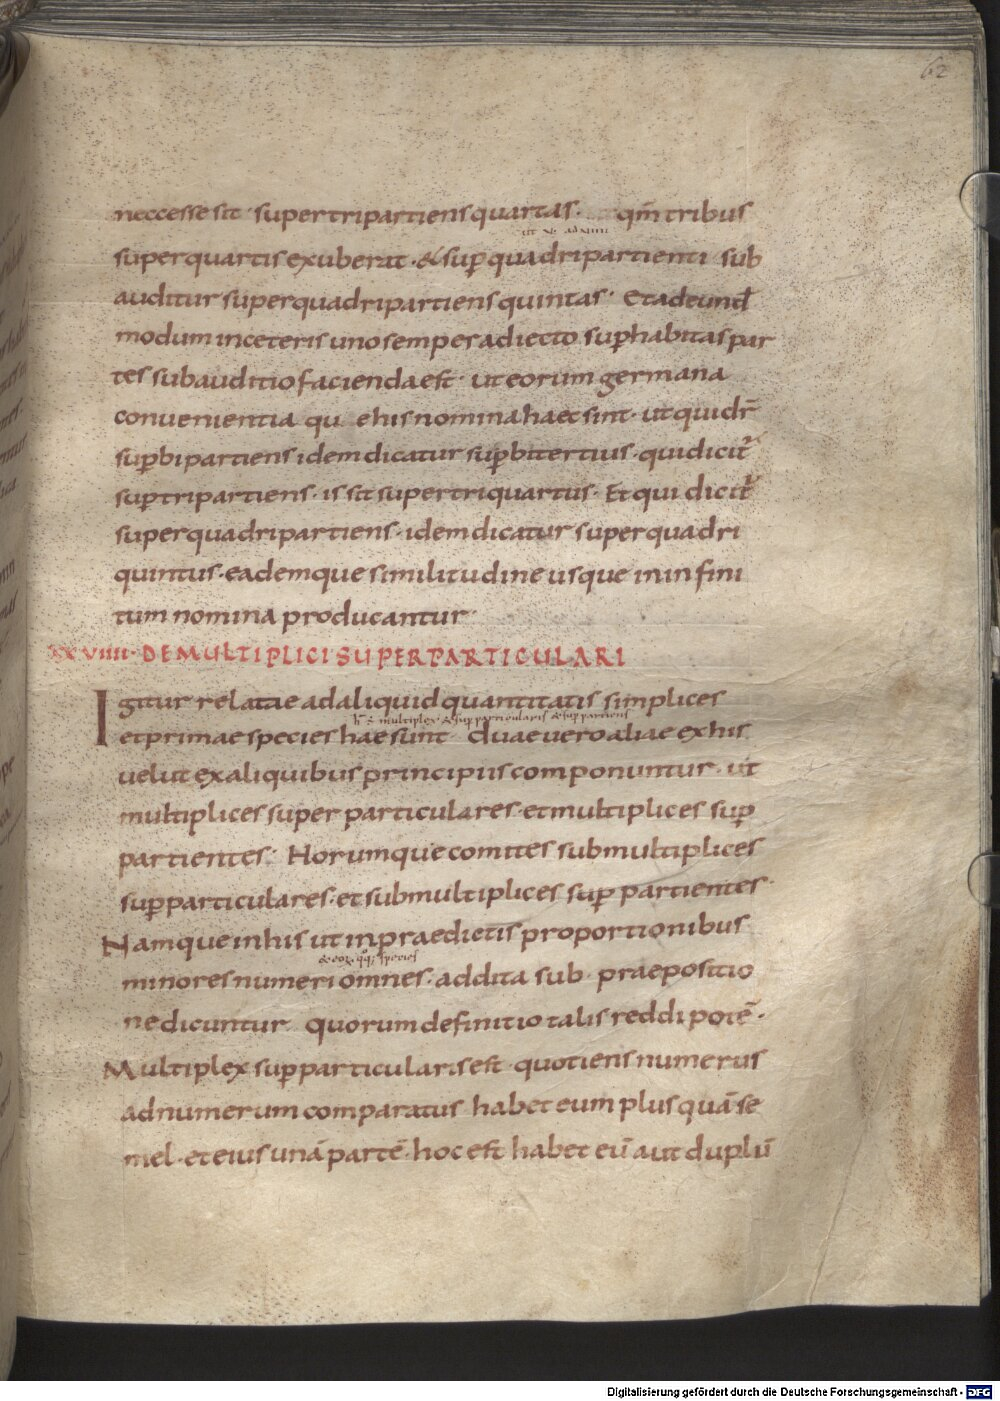 62
neccesse sit · super tripartiens quartas · qm̄ tribus
ut xi· ad viiii
super quartis exuberat · & suꝑ quadripartienti sub
auditur super quadripartiens quintas · Et ad eund̄
modum in ceteris uno semper adiecto suꝑ habitas par
tes subauditio facienda est · ut eorum germana
convenientia qu e his nomina haec sint · ut qui dr̄
suꝑbipartiens idem dicatur suꝑbitertius · qui dicit᷑
suꝑtripartiens · is sit supertriquartus · Et qui dicit᷑
superquadripartiens · idem dicatur superquadri
quintus · eademque similitudine usque in infini
tum nomina producantur ·
XXVIIII · DE MULTIPLICI SUPERPARTICULARI
Igitur relatae ad aliquid quantitatis simplices
h̄ ē multiplex · & supparticularis & suppartiens
et primae species hae sunt · duae vero aliae ex his
velut ex aliquibus principiis componuntur · ut
multiplices super particulares · et multiplices suꝑ
partientes · Horumque comites submultiplices
suꝑparticulares · et submultiplices suꝑ partientes ·
Namque in his ut in praedictis proportionibus
minores numeri omnes · addita sub · praepositio
ne dicuntur quorum definitio talis reddi potē ·
Multiplex suꝑparticularis est · quotiens numerus
ad numerum comparatus habet eum plus quā se
mel · et eius unā partē · hoc est habet eū aut duplū
Digitalisierung gefördert durch die Deutsche Forschungsgemeinschaft - DFG